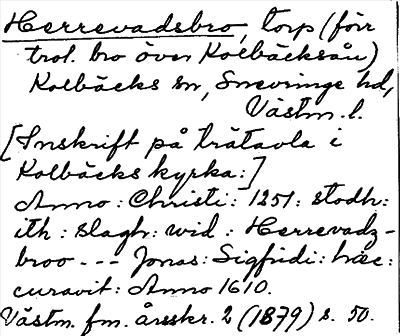 Herrevadsbro, torp (förr
trol. bro över Kolbäcksån)
Kolbäcks sn, Snevringe hd,
Västm. l.
[Inskrift på trätavla i
Kolbäcks kyrka:]
Anno: Christi: 1251: stodh:
ith: slagh: wid: Herrevadz-
broo --- Jonas: Sigfridi: hæc:
curavit: Anno 1610.
Västm. fm. årsskr. 2 (1879) s. 50.